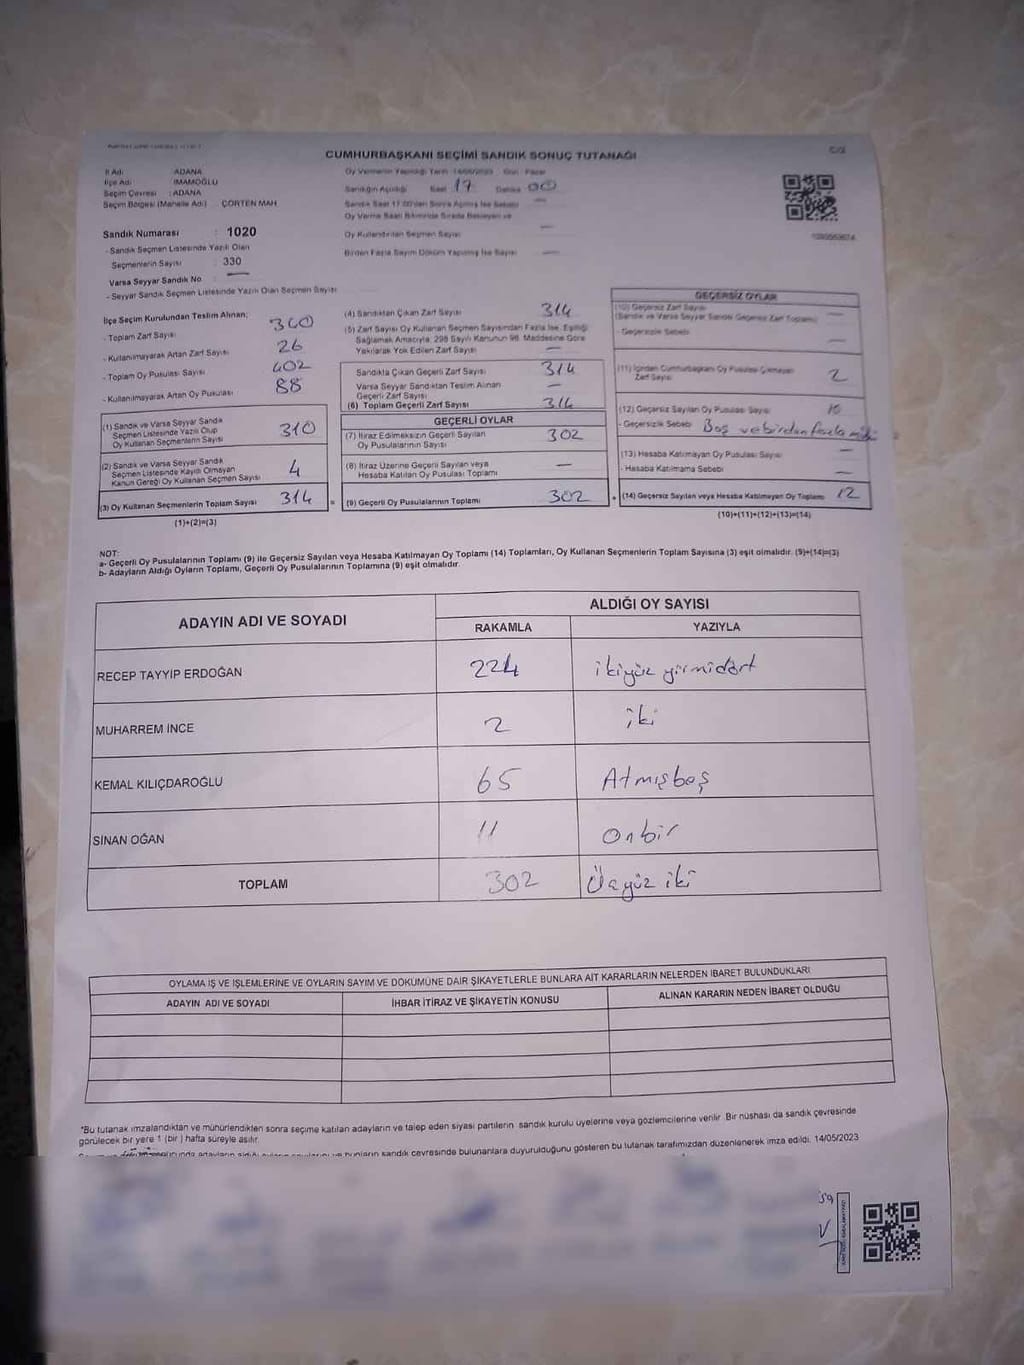 CUMHURBAŞKANI SEÇİMİ SANDIK SONUÇ TUTANAĞI
İl Adı : ADANA
İlçe Adı : İMAMOĞLU
Seçim Çevresi : ADANA
Seçim Bölgesi (Mahalle Adı) : ÇÖRTEN MAH
Oy Vermenin Yapıldığı Tarih 14/05/2023 Gün Pazar
Sandığın Açıldığı Saat 17 Dakika 00
Sandık Saat 17:00'den Sonra Açılmış İse Sebebi —
Oy Verme Saati Bitiminde Sırada Bekleyen ve
Oy Kullandırılan Seçmen Sayısı —
Birden Fazla Sayım Döküm Yapılmış İse Sayısı —
Sandık Numarası : 1020
- Sandık Seçmen Listesinde Yazılı Olan
Seçmenlerin Sayısı : 330
Varsa Seyyar Sandık No —
- Seyyar Sandık Seçmen Listesinde Yazılı Olan Seçmen Sayısı
İlçe Seçim Kurulundan Teslim Alınan;
- Toplam Zarf Sayısı 340
- Kullanılmayarak Artan Zarf Sayısı 26
- Toplam Oy Pusulası Sayısı 402
- Kullanılmayarak Artan Oy Pusulası 88
(1) Sandık ve Varsa Seyyar Sandık
Seçmen Listesinde Yazılı Olup
Oy Kullanan Seçmenlerin Sayısı 310
(2) Sandık ve Varsa Seyyar Sandık
Seçmen Listesinde Kayıtlı Olmayan
Kanun Gereği Oy Kullanan Seçmen Sayısı 4
(3) Oy Kullanan Seçmenlerin Toplam Sayısı 314 =
(1)+(2)=(3)
(4) Sandıktan Çıkan Zarf Sayısı 314
(5) Zarf Sayısı Oy Kullanan Seçmen Sayısından Fazla İse, Eşitliği
Sağlamak Amacıyla, 298 Sayılı Kanunun 98. Maddesine Göre
Yakılarak Yok Edilen Zarf Sayısı —
Sandıkta Çıkan Geçerli Zarf Sayısı 314
Varsa Seyyar Sandıktan Teslim Alınan
Geçerli Zarf Sayısı —
(6) Toplam Geçerli Zarf Sayısı 314
GEÇERLİ OYLAR
(7) İtiraz Edilmeksizin Geçerli Sayılan
Oy Pusulalarının Sayısı 302
(8) İtiraz Üzerine Geçerli Sayılan veya
Hesaba Katılan Oy Pusulası Toplamı —
(9) Geçerli Oy Pusulalarının Toplamı 302 +
GEÇERSİZ OYLAR
(10) Geçersiz Zarf Sayısı
(Sandık ve Varsa Seyyar Sandık Geçersiz Zarf Toplamı) —
- Geçersizlik Sebebi —
(11) İçinden Cumhurbaşkanı Oy Pusulası Çıkmayan
Zarf Sayısı 2
(12) Geçersiz Sayılan Oy Pusulası Sayısı 10
- Geçersizlik Sebebi Boş ve birden fazla
(13) Hesaba Katılmayan Oy Pusulası Sayısı —
- Hesaba Katılmama Sebebi —
(14) Geçersiz Sayılan veya Hesaba Katılmayan Oy Toplamı 12
(10)+(11)+(12)+(13)=(14)
NOT:
a- Geçerli Oy Pusulalarının Toplamı (9) ile Geçersiz Sayılan veya Hesaba Katılmayan Oy Toplamı (14) Toplamları, Oy Kullanan Seçmenlerin Toplam Sayısına (3) eşit olmalıdır. (9)+(14)=(3)
b- Adayların Aldığı Oyların Toplamı, Geçerli Oy Pusulalarının Toplamına (9) eşit olmalıdır.
ADAYIN ADI VE SOYADI
ALDIĞI OY SAYISI
RAKAMLA YAZIYLA
RECEP TAYYİP ERDOĞAN 224 ikiyüz yirmidört
MUHARREM İNCE 2 iki
KEMAL KILIÇDAROĞLU 65 Atmışbeş
SİNAN OĞAN 11 Onbir
TOPLAM 302 Üçyüz iki
OYLAMA İŞ VE İŞLEMLERİNE VE OYLARIN SAYIM VE DÖKÜMÜNE DAİR ŞİKAYETLERLE BUNLARA AİT KARARLARIN NELERDEN İBARET BULUNDUKLARI
ADAYIN ADI VE SOYADI İHBAR İTİRAZ VE ŞİKAYETİN KONUSU ALINAN KARARIN NEDEN İBARET OLDUĞU
*Bu tutanak imzalandıktan ve mühürlendikten sonra seçime katılan adayların ve talep eden siyasi partilerin sandık kurulu üyelerine veya gözlemcilerine verilir. Bir nüshası da sandık çevresinde
görülecek bir yere 1 (bir) hafta süreyle asılır.
bunların sandık çevresinde bulunanlara duyurulduğunu gösteren bu tutanak tarafımızdan düzenlenerek imza edildi. 14/05/2023